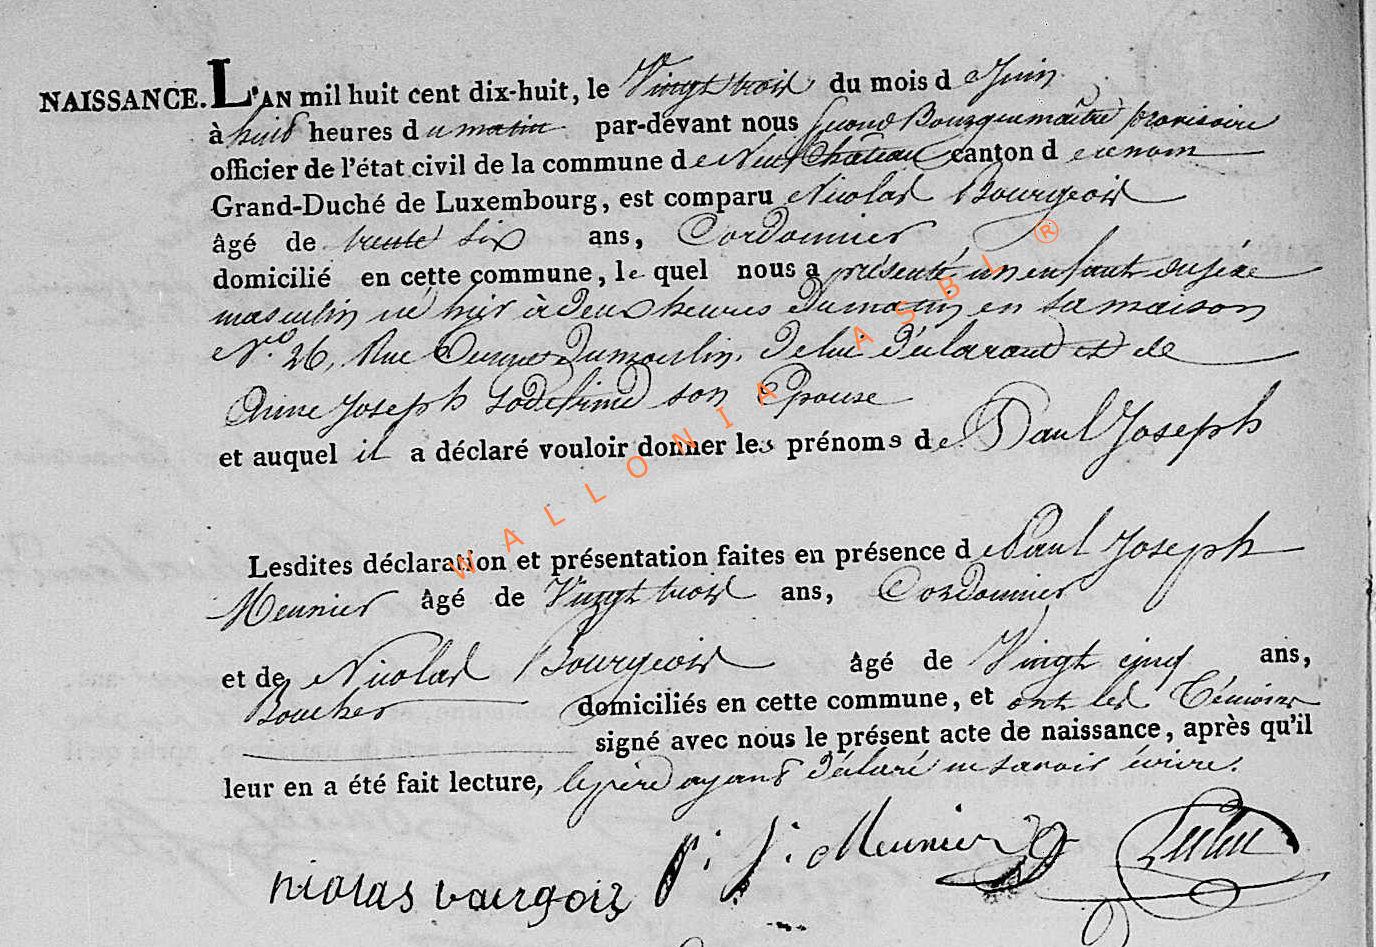 NAISSANCE. L'AN mil huit cent dix-huit, le Vingt trois du mois de Juin
à huit heures du matin par-devant nous Second Bourguemaître provisoire
officier de l'état civil de la commune de Neufchâteau canton d
Grand-Duché de Luxembourg, est comparu Nicolas Bourgeois
âgé de trente six ans, Cordonnier
domicilié en cette commune, lequel nous a présenté un enfant du séxe
masculin né hier à deux heures du matin en sa maison
N.ro 26, Rue dumoulin, de lui déclarant et de
Anne Joseph son Epouse
et auquel il a déclaré vouloir donner les prénoms de Paul Joseph
Lesdites déclaration et présentation faites en présence de Paul Joseph
Meunier âgé de Vingt trois ans, Cordonnier
et de Nicolas Bourgeois âgé de Vingt cinq ans,
Boucher domiciliés en cette commune, et ont les Témoins
signé avec nous le présent acte de naissance, après qu'il
leur en a été fait lecture, le père ayant déclaré ne savoir écrire.
nicolas bourgois P. J. Meunier
WALLONIA ASBL ®